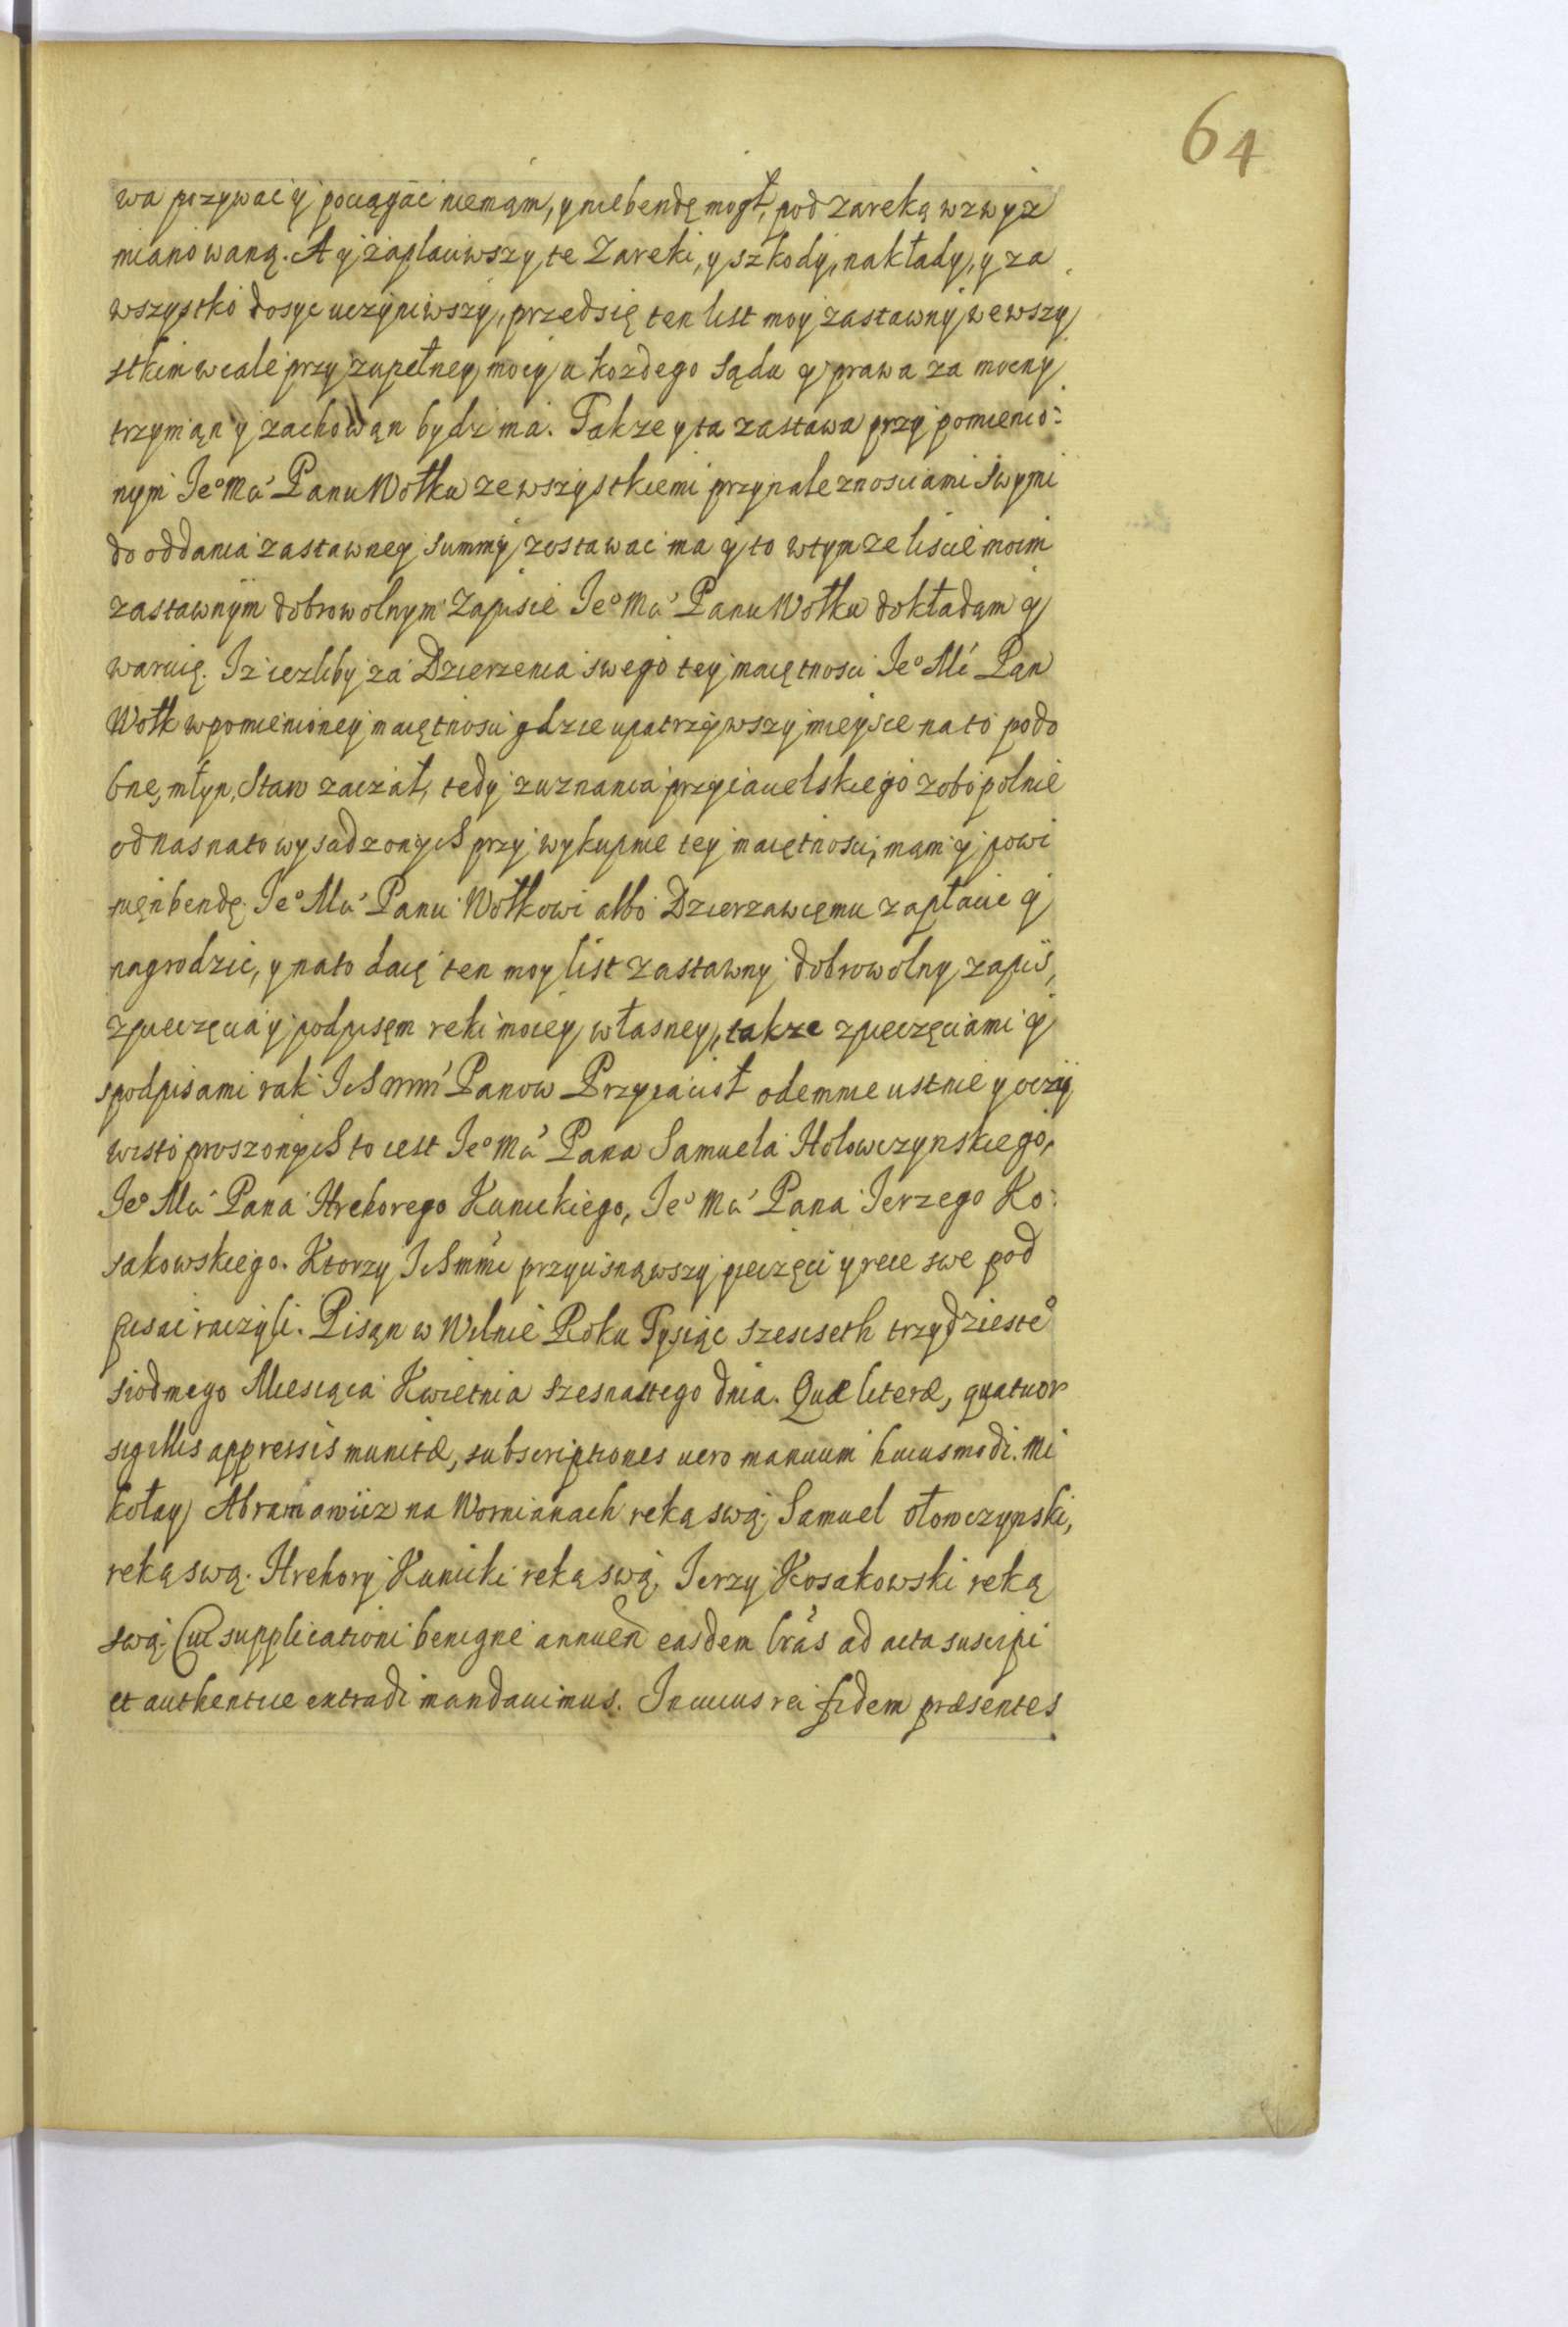 64
wa pozywac y pociągac niemąm, y niebendę mogł, pod zareką wzwyz
mianowaną. A y zaplaciwszy te Zareki, y szkody, nakłady, y za
wszystko dosyc uczyniwszy, przedsię ten list moy zastawny, wewszy
stkim wcale przy zupełney mocy, u kozdego sądu y prawa za mocny
trzymąn y zachowąn bydz ma. Takze y ta zastawa przy pomienio:
nym Ie° Mci Panu Wołku ze wszystkiemi przynaleznosciami swymi
do oddania zastawney summy zostawac ma y to wtymze liscie moim
zastawnym dobrowolnym Zapisie Ie° Mci Panu Wołku dokładąm y
waruię. Iz iezliby za Dzierzenia swego tey maiętnosci Ie° Mć Pąn
Wołk wpomienioney maiętnosci gdzie upatrzywszy mieysce na to podo
bne, młyn, Staw zaczał, tedy zuznania przyiacielskiego zobopolnie
odnas nato wysadzonych przy wykupnie tey maiętnosci, mąm y powi
nięn bendę Ie° Mci Panu Wołkowi albo Dzierzawcemu zapłacic y
nagrodzic, y nato daię ten moy list zastawny dobrowolny zapis,
zpieczęcią y podpisęm reki moiey własney, takze zpieczęciami y
spodpisami rak Ich Mm Panow Przyiacioł odemnie ustnie y oczy
wisto proszonych to iest Ie° Mci Pana Samuela Holowczynskiego,
Ie° Mci Pana Hrehorego Kunickiego, Ie° Mci Pana Ierzego Ko:
sakowskiego. Ktorzy Ich Mmci przycisnąwszy pieczęci y rece swe pod
pisac raczyli. Pisąn w Wilnie Roku Tysiąc szescseth trzydzieste°
siodmego Miesiąca Kwietnia szesnastego dnia. Quæ literæ, quatuor
sigillis appressis munitæ, subscriptiones uero manuum huiusmodi. Mi
kołay Abramowicz na Wornianach reką swą. Samuel ołowczynski,
reką swą. Hrehory Kunicki reką swą, Ierzy Kosakowski reką
swą. Cui supplicationi benigne annuen easdem lrás ad acta suscipi
et authentice extradi mandauimus. In cuius rei fidem præsentes